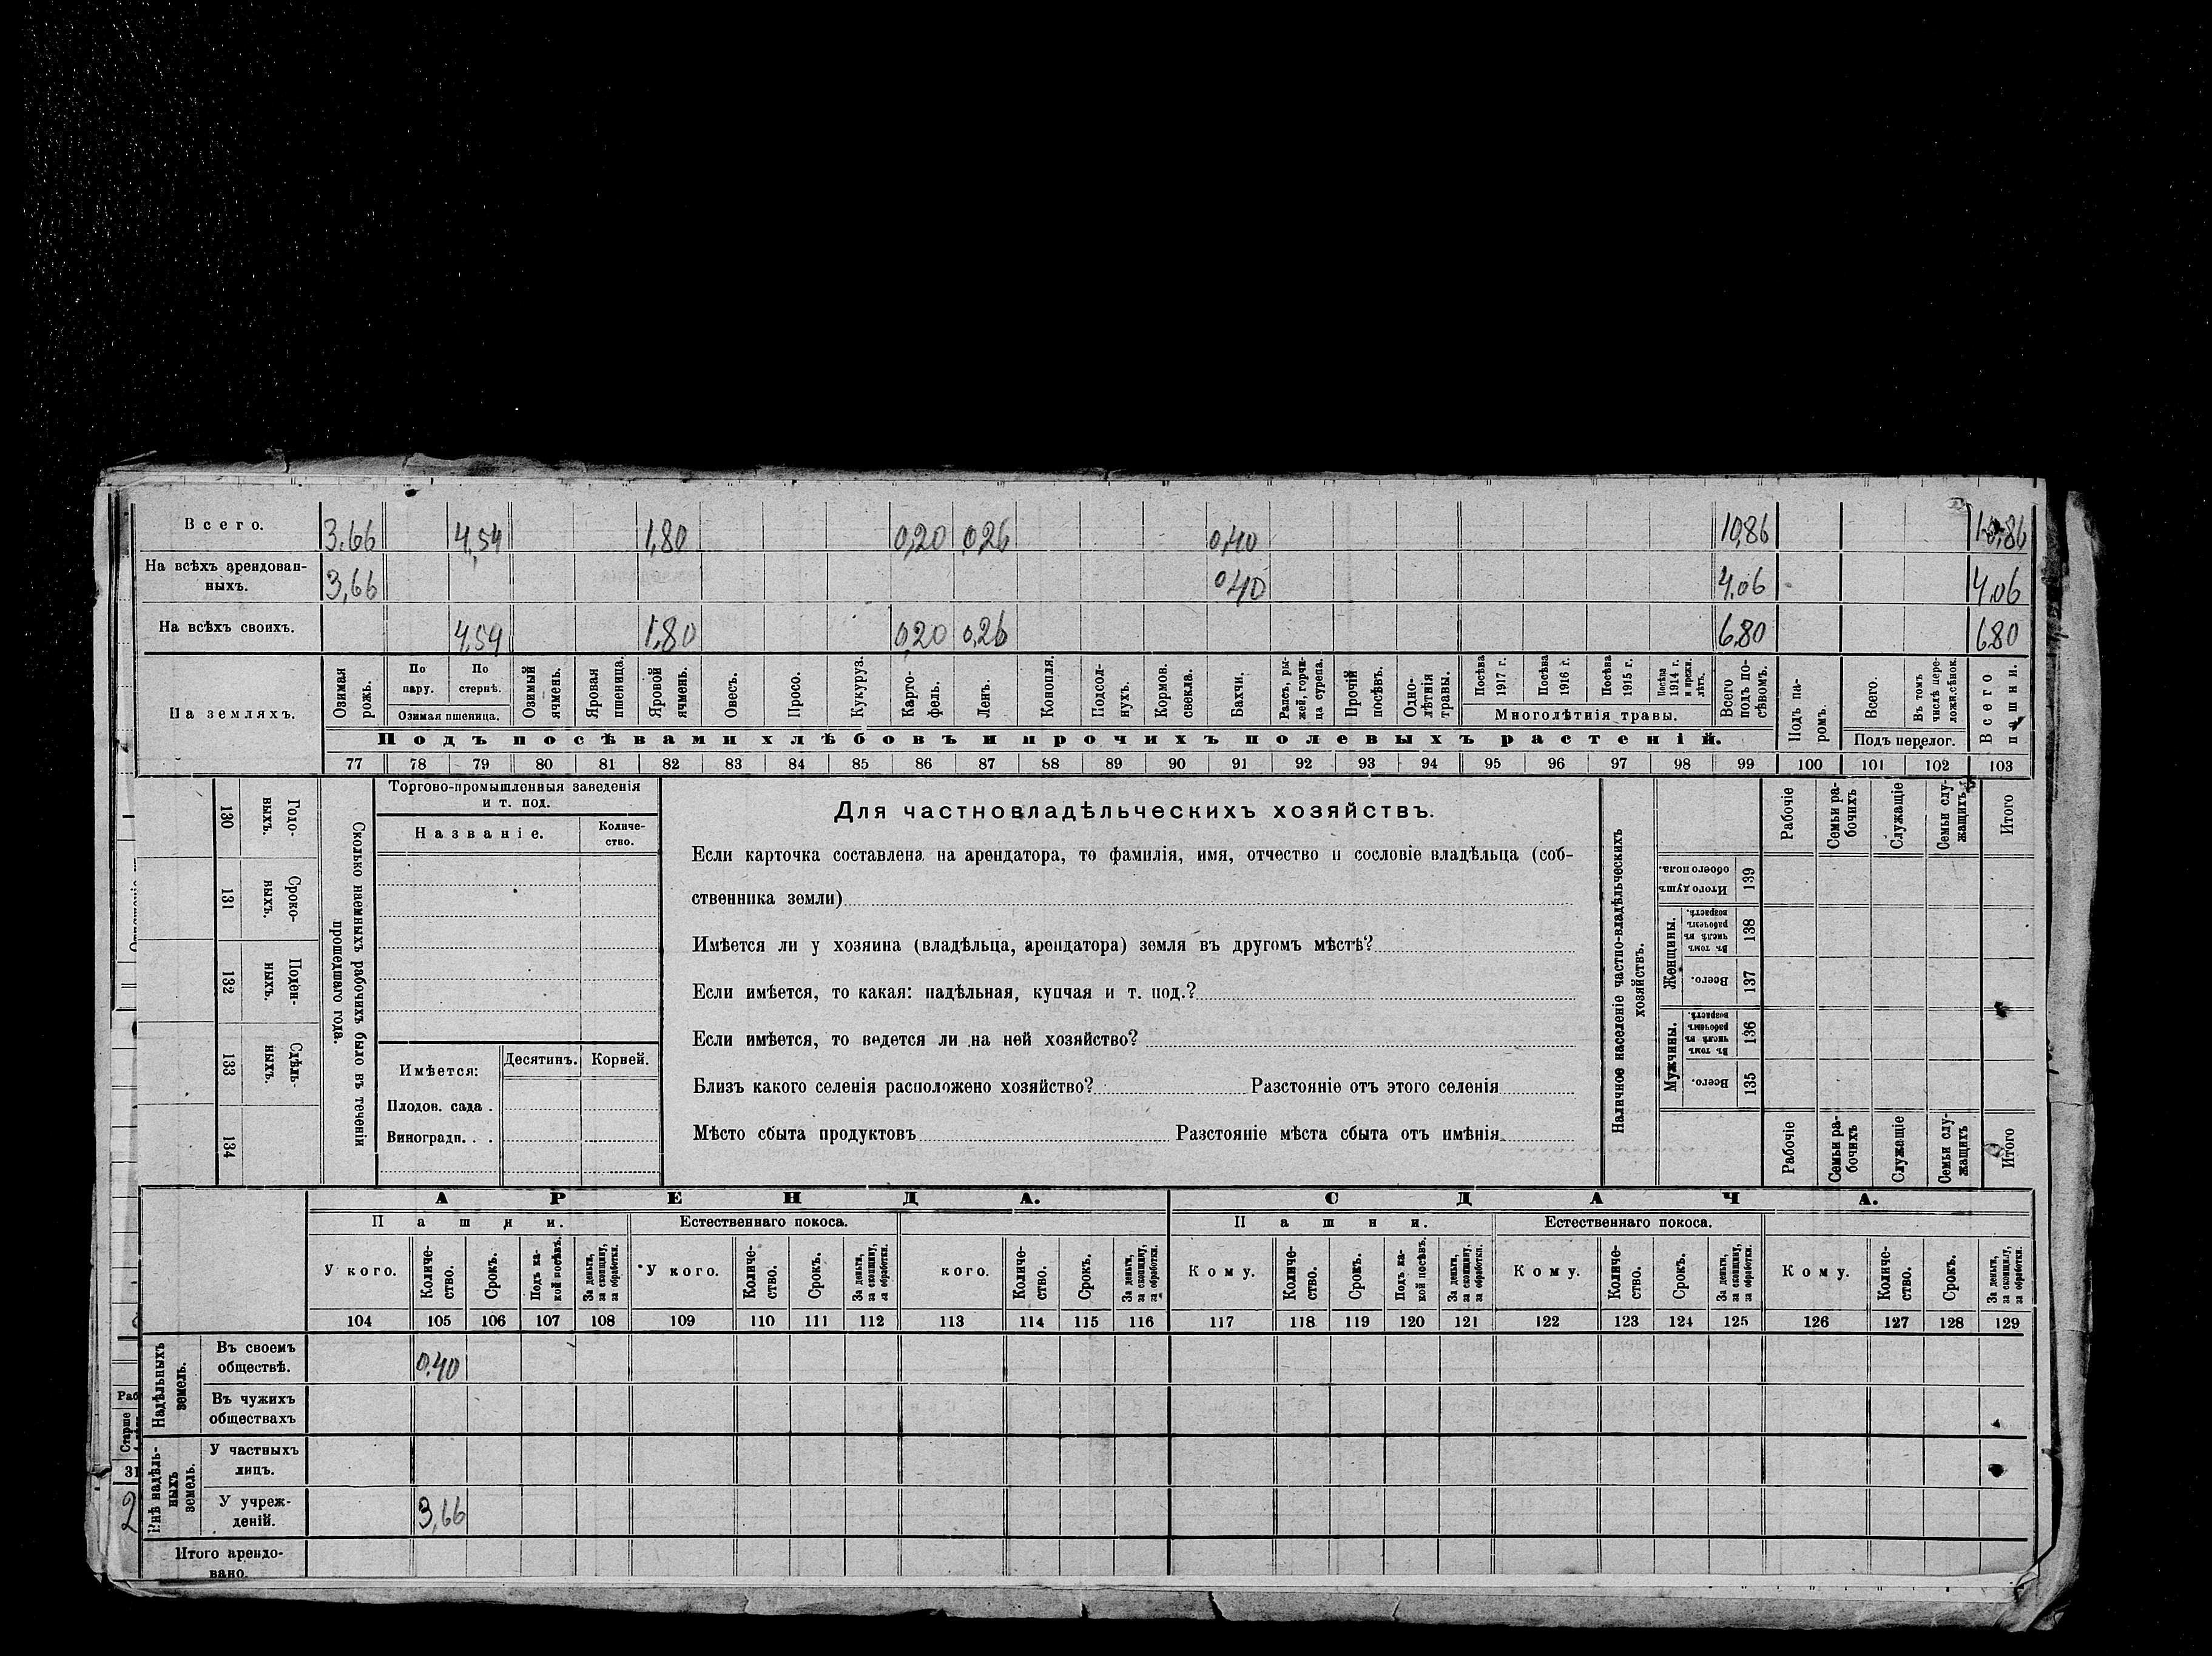 Всего. 3.66 4,54 1,80 0,20 0,26 0,40 10,86 10,86
На всѣхъ арендован-
ныхъ. 3,66 0 40 4,06 4,06
На всѣхъ своихъ. 4,54 1,80 0,20 0,26 6,80 6,80
На земляхъ.
Озимая рожь.
По пару.
По стернѣ.
Озимая пшеница.
Озимый ячмень.
Яровая пшеница.
Яровой ячмень.
Овесъ.
Просо.
Кукуруз.
Карто-
фель.
Ленъ.
Конопля.
Подсол-
нухъ.
Кормов. свекла.
Бахчи.
Рапсъ, ры-
жей, горчи-
ца сурепа.
Прочій посѣвъ.
Одно-
лѣтнія травы.
Посѣва 1917 г.
Посѣва 1916 г.
Посѣва 1915 г.
Посѣва 1914 г. и прежн. лѣтъ.
Многолѣтнія травы.
Всего подъ по-
сѣвомъ.
Подъ па-
ромъ.
Всего.
Въ томъ числѣ пере-
лож.сѣнок.
Подъ перелог.
Всего пашни.
Подъ посѣвами хлѣбовъ и прочихъ полевыхъ растеній.
77 78 79 80 81 82 83 84 85 86 87 88 89 90 91 92 93 94 95 96 97 98 99 100 101 102 103
130 Годо-
выхъ.
131 Сроко-
выхъ.
132 Поден-
ныхъ.
133 Сдѣль-
ныхъ.
134
Сколько наемныхъ рабочихъ было въ теченіи
прошедшаго года.
Торгово-промышленныя заведенія
и т. под.
Названіе.
Количе-
ство.
Имѣется:
Десятинъ. Корней.
Плодов. сада .
Виноградн. . .
Для частновладѣльческихъ хозяйствъ.
Если карточка составлена на арендатора, то фамилія, имя, отчество и сословіе владѣльца (соб-
ственника земли)
Имѣется ли у хозяина (владѣльца, арендатора) земля въ другомъ мѣстѣ?
Если имѣется, то какая: надѣльная, купчая и т. под.?
Если имѣется, то ведется ли на ней хозяйство?
Близъ какого селенія расположено хозяйство? Разстояніе отъ этого селенія
Мѣсто сбыта продуктовъ Разстояніе мѣста сбыта отъ имѣнія
Наличное населеніе частно-владѣльческихъ
хозяйствъ.
Рабочіе
Семьи ра-
бочихъ
Служащіе
Семьи слу-
жащихъ
Итого
Итого душъ обоего пола. 139
Женщины.
Въ томъ числѣ въ рабочемъ возрастѣ. 138
Всего. 137
Мужчины.
Въ томъ числѣ въ рабочемъ возрастѣ. 136
Всего. 135
Рабочіе
Семьи ра-
бочихъ
Служащіе
Семьи слу-
жащихъ
Итого
АРЕНДА. СДАЧА.
Пашни. Естественнаго покоса. Пашни. Естественнаго покоса.
У кого.
Количе-
ство.
Срокъ.
Подъ ка-
кой посѣвъ.
За деньги,
за скопщину,
за обработки.
У кого.
Количе-
ство.
Срокъ.
За деньги,
за скопщину,
за обработки.
кого.
Количе-
ство.
Срокъ.
За деньги,
за скопщину,
за обработки.
Кому.
Количе-
ство.
Срокъ.
Подъ ка-
кой посѣвъ.
За деньги,
за скопщину,
за обработки.
Кому.
Количе-
ство.
Срокъ.
За деньги,
за скопщину,
за обработки.
Кому.
Количе-
ство.
Срокъ.
За деньги,
за скопщину,
за обработки.
104 105 106 107 108 109 110 111 112 113 114 115 116 117 118 119 120 121 122 123 124 125 126 127 128 129
Надѣльныхъ
земель.
Въ своемъ
обществѣ. 0.40
Въ чужихъ
обществахъ
Внѣ надѣль-
ныхъ
земель.
У частныхъ
лицъ.
У учреж-
деній. 3,66
Итого арендо-
вано.
Раб
Старше
31
2